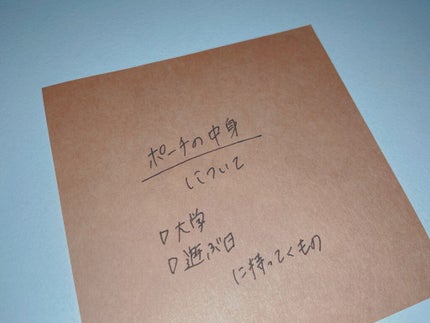 ポーチの中身
について
□大学
□遊ぶ日
に持ってくもの